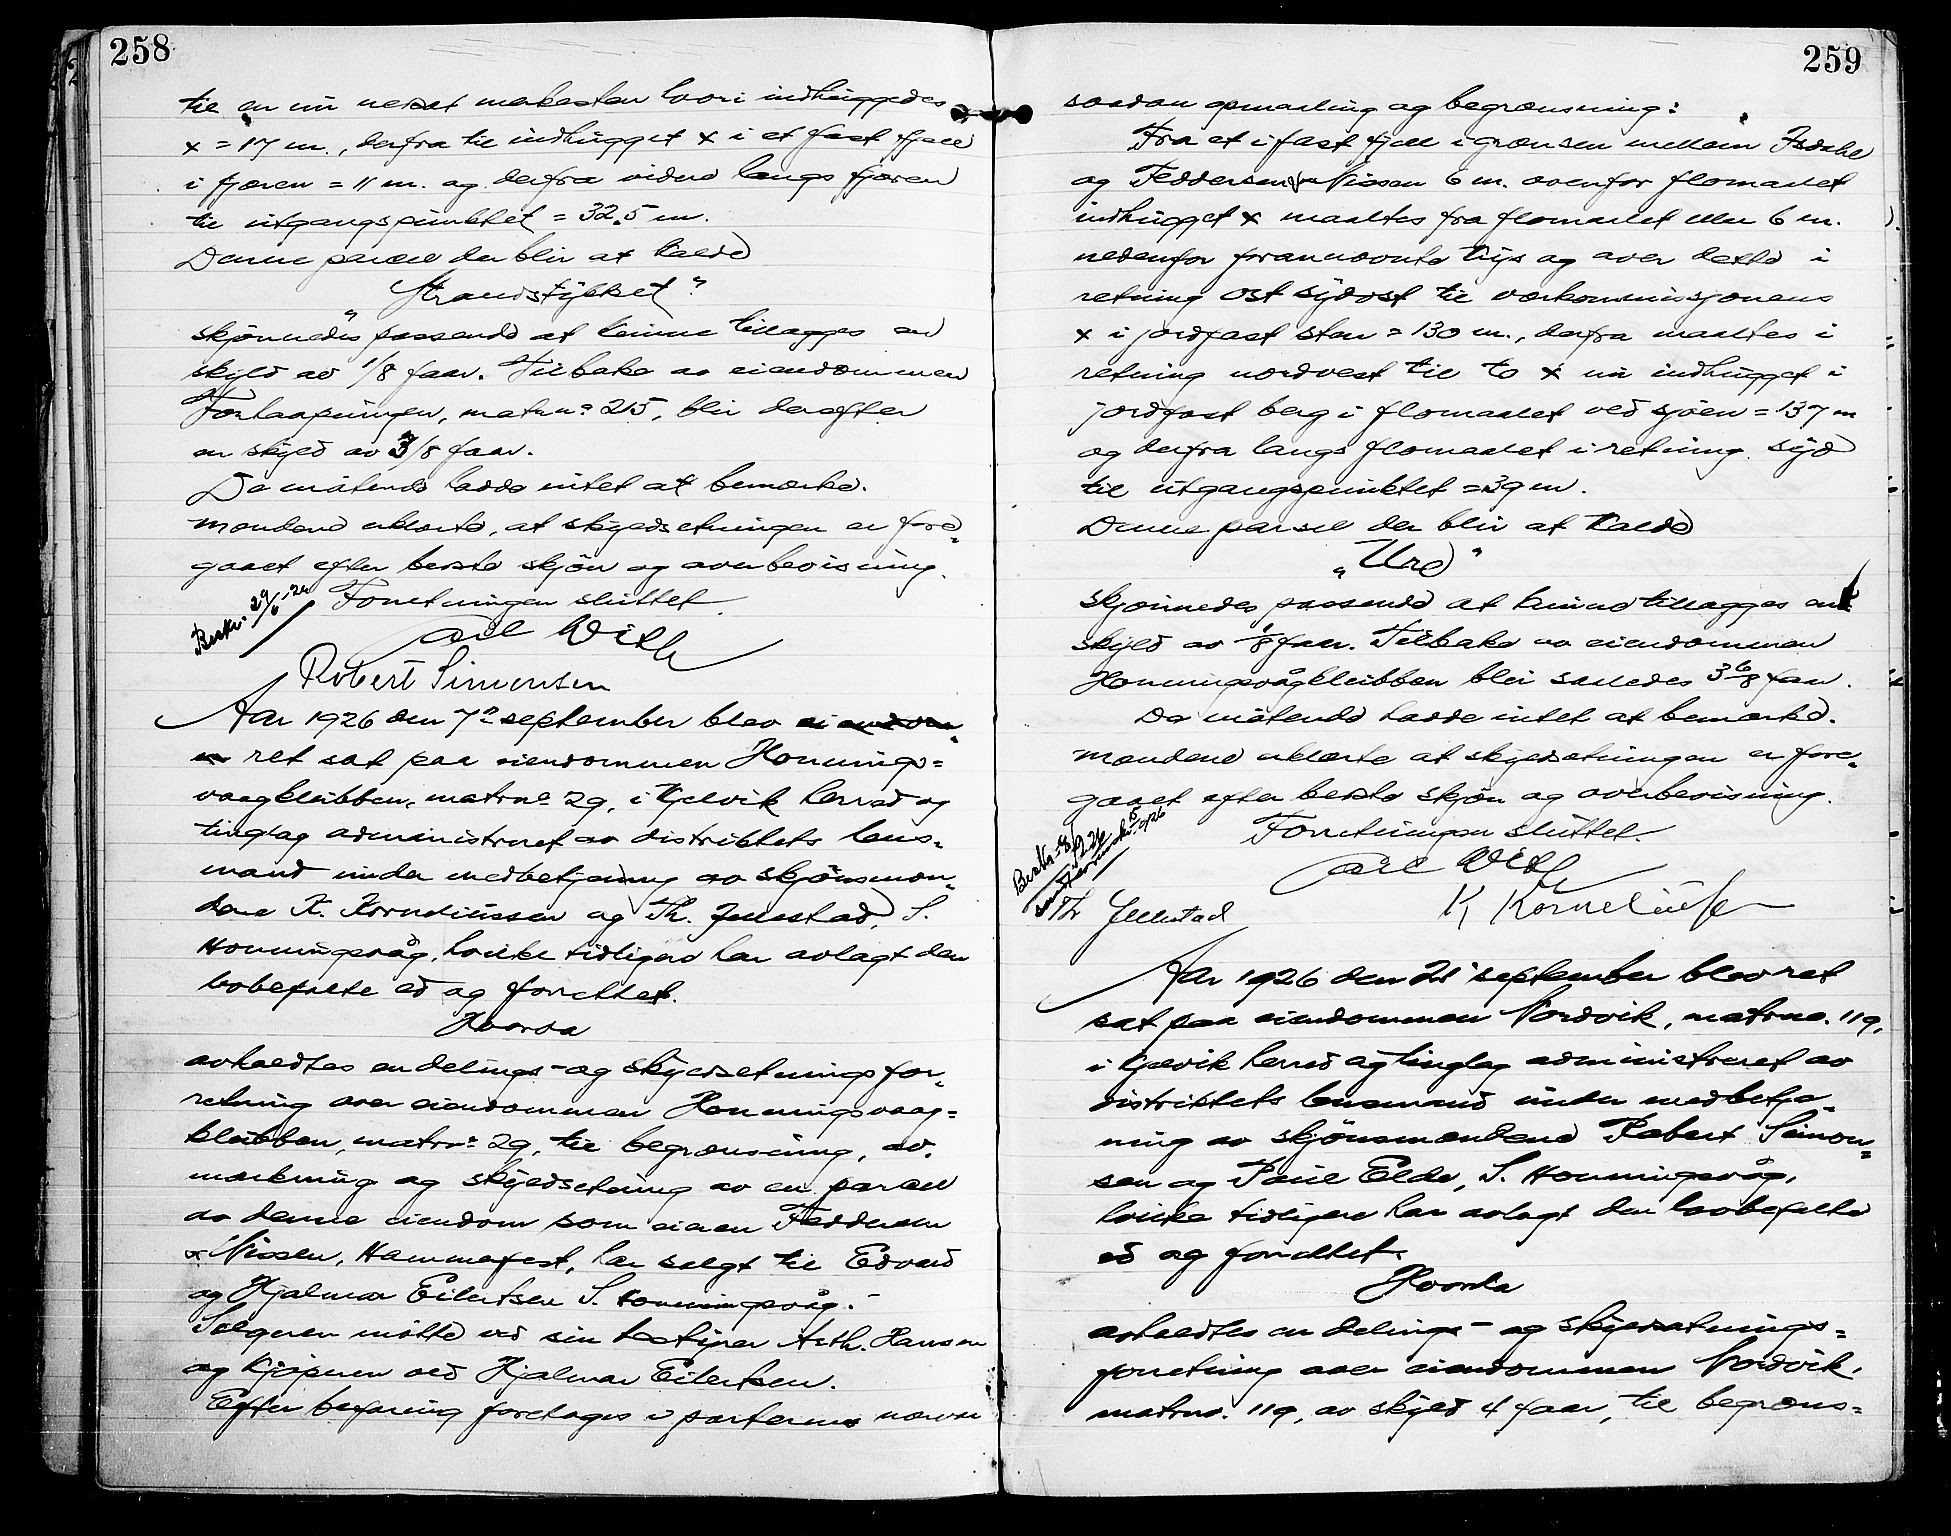 258
til en nu nedsat merkesten hvori indhuggedes
x = 17 m., derfra til indhugget x i et fast fjell
i fjæren = 11 m. og derfra videre langs fjæren
til utgangspunktet = 32.5 m.
Denne parcel der blir at kalde
"Strandstykket"
skjønnedes passende at kunne tillægges en
skyld av 1/8 faar. Tilbake av eiendommen
matrno 215, blir derefter
en skyld av 3/8 faar.
De møtende hadde intet at bemærke.
Mændene erklærte, at skyldsetningen er fore-
gaaet efter beste skjøn og overbevisning.
Forretningen sluttet.
Beskr. 29/6-26
Carl With
Robert Simonsen
Aar 1926 den 7de september blev eiendom-
en ret sat paa eiendommen Honnings-
vaagklubben, matrno 29, i Kjelvik herred og
tinglag administreret av distriktets lens-
mand under medbetjening av skjønsmæn-
dene K. Korneliussen og Th. Jellestad, S.
Honningsvåg, hvilke tidligere har avlagt den
lovbefalte ed og forrettet.
Hvorda
avholdtes en delings- og skyldsetningsfor-
retning over eiendommen Honningsvaag-
klubben, matrno 29, til begrænsning, av-
merkning og skyldsetning av en parcell
av denne eiendom som eieren Feddersen
& Nissen, Hammerfest, har solgt til Edvard
og Hjalmar Eilertsen S. Honningsvåg.-
Selgeren møtte ved sin bestyrer Arth. Hansen
og kjøperen ved Hjalmar Eilertsen.
Efter befaring foretages i parternes nærvær
259
saadan opmaaling og begrænsning:
Fra et i fast fjell i grænsen mellem Isdahl
og Feddersen & Nissen 6 m. ovenfor flomaalet
indhugget x maaltes fra flomaalet eller 6 m.
nedenfor forannævnte kryss og over dette i
retning ost sydost til
x i jordfast sten = 130 m., derfra maaltes i
retning nordvest til to x nu indhugget i
jordfast berg i flomaalet ved sjøen = 137 m
og derfra langs flomaalet i retning syd
til utgangspunktet = 39 m.
Denne parsel der blir at kalde
"Urd"
skjønnedes passende at kunne tillægges en
skyld av 1/8 faar. Tilbake av eiendommen
Honningsvågklubben blir saaledes 3 6/8 faar.
De møtende hadde intet at bemærke.
Mændene erklærte at skyldsetningen er fore-
gaaet efter beste skjøn og overbevisning.
Forretningen sluttet.
Carl With
K Korneliussen
Th Jellestad
Aar 1926 den 21' september blev ret
sat paa eiendommen Nordvik, matrno. 119,
i Kjelvik herred og tinglag administreret av
distriktets lensmand under medbetje-
ning av skjønsmændene Robert Simon-
sen og Paul Elde, S. Honningsvåg,
hvilke tidligere har avlagt den lovbefalte
ed og forrettet.
Hvorda
avholdtes en delings- og skyldsetnings-
forretning over eiendommen Nordvik,
matrno. 119, av skyld 4 faar, til begræns-